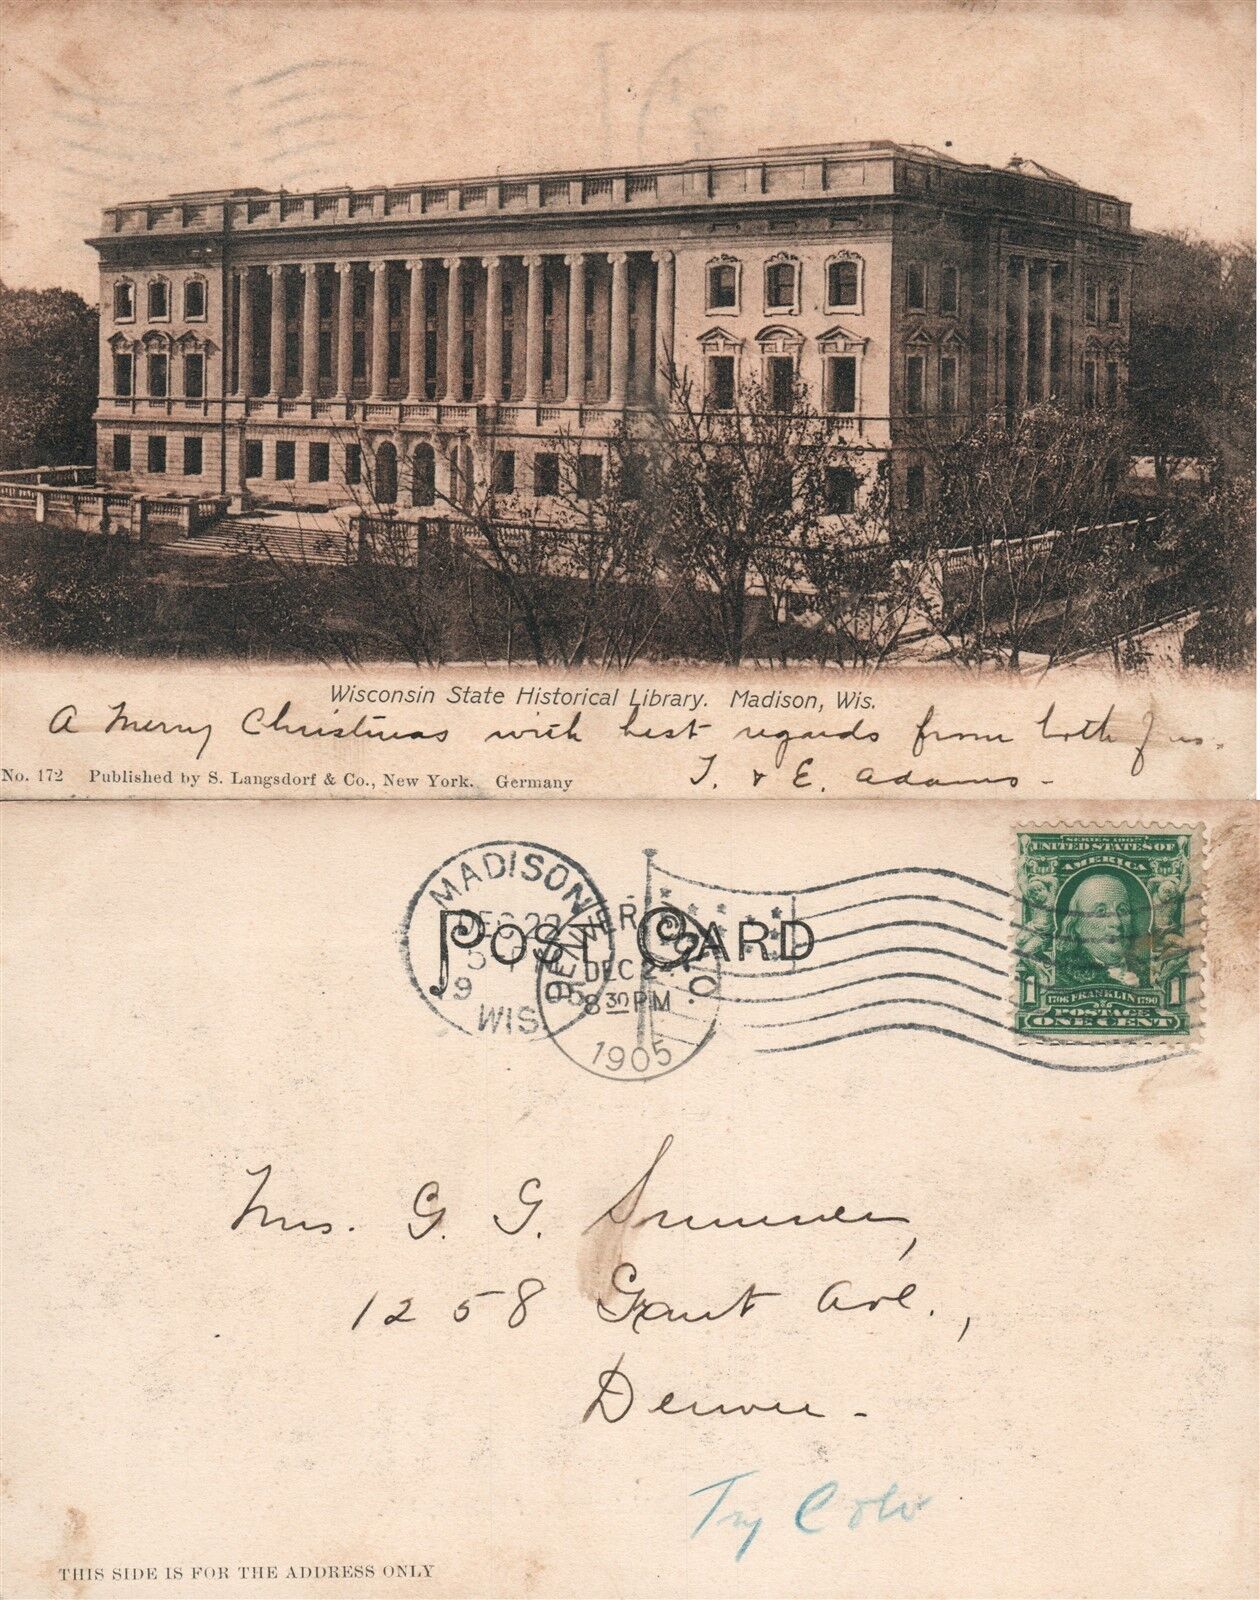 Wisconsin State Historical Library. Madison, Wis.
A Merry Christmas with best regards from both of us.
T. & E. Adams -
No. 172 Published by S. Langsdorf & Co., New York. Germany
MADISON
DEC 22
WIS.
DENVER COLO.
DEC 24
8 30 PM
1905
POST CARD
SERIES 1902
UNITED STATES OF
AMERICA
1706 FRANKLIN 1790
1 1
POSTAGE
ONE CENT
Mrs. G. G. Sumner,
1258 Grant Ave.,
Denver -
Try Colo
THIS SIDE IS FOR THE ADDRESS ONLY